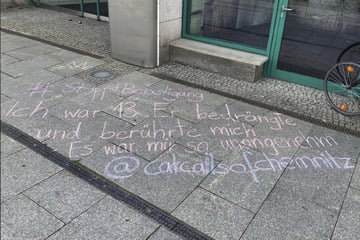 #stopptBelästigung
Ich war 13. Er bedrängte
und berührte mich
Es war mir so unangenehm
@catcallsofchemnitz